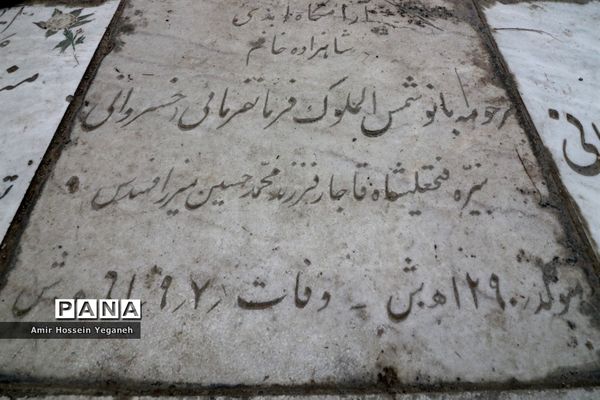 آرامگاه ابدی
شاهزاده خانم
مرحومه بانو شمس الملوک فرمانفرمائی (خسروانی
نبیره فتحعلیشاه قاجار فرزند محمد حسین میرزا مهندس
متولد ۱۲۹۰ ه ش - وفات
PANA
Amir Hossein Yeganeh